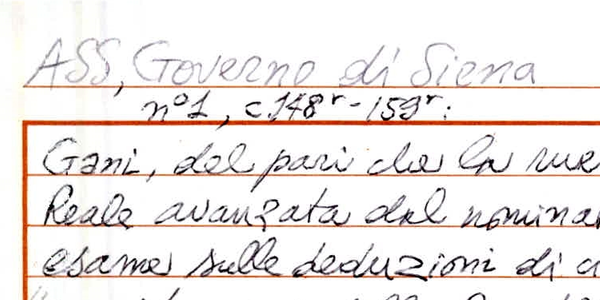 ASS, Governo di Siena
n°1, c.148r-159r:
Gani, del pari che la
Reale avanzata dal
esame sulle deduzioni di